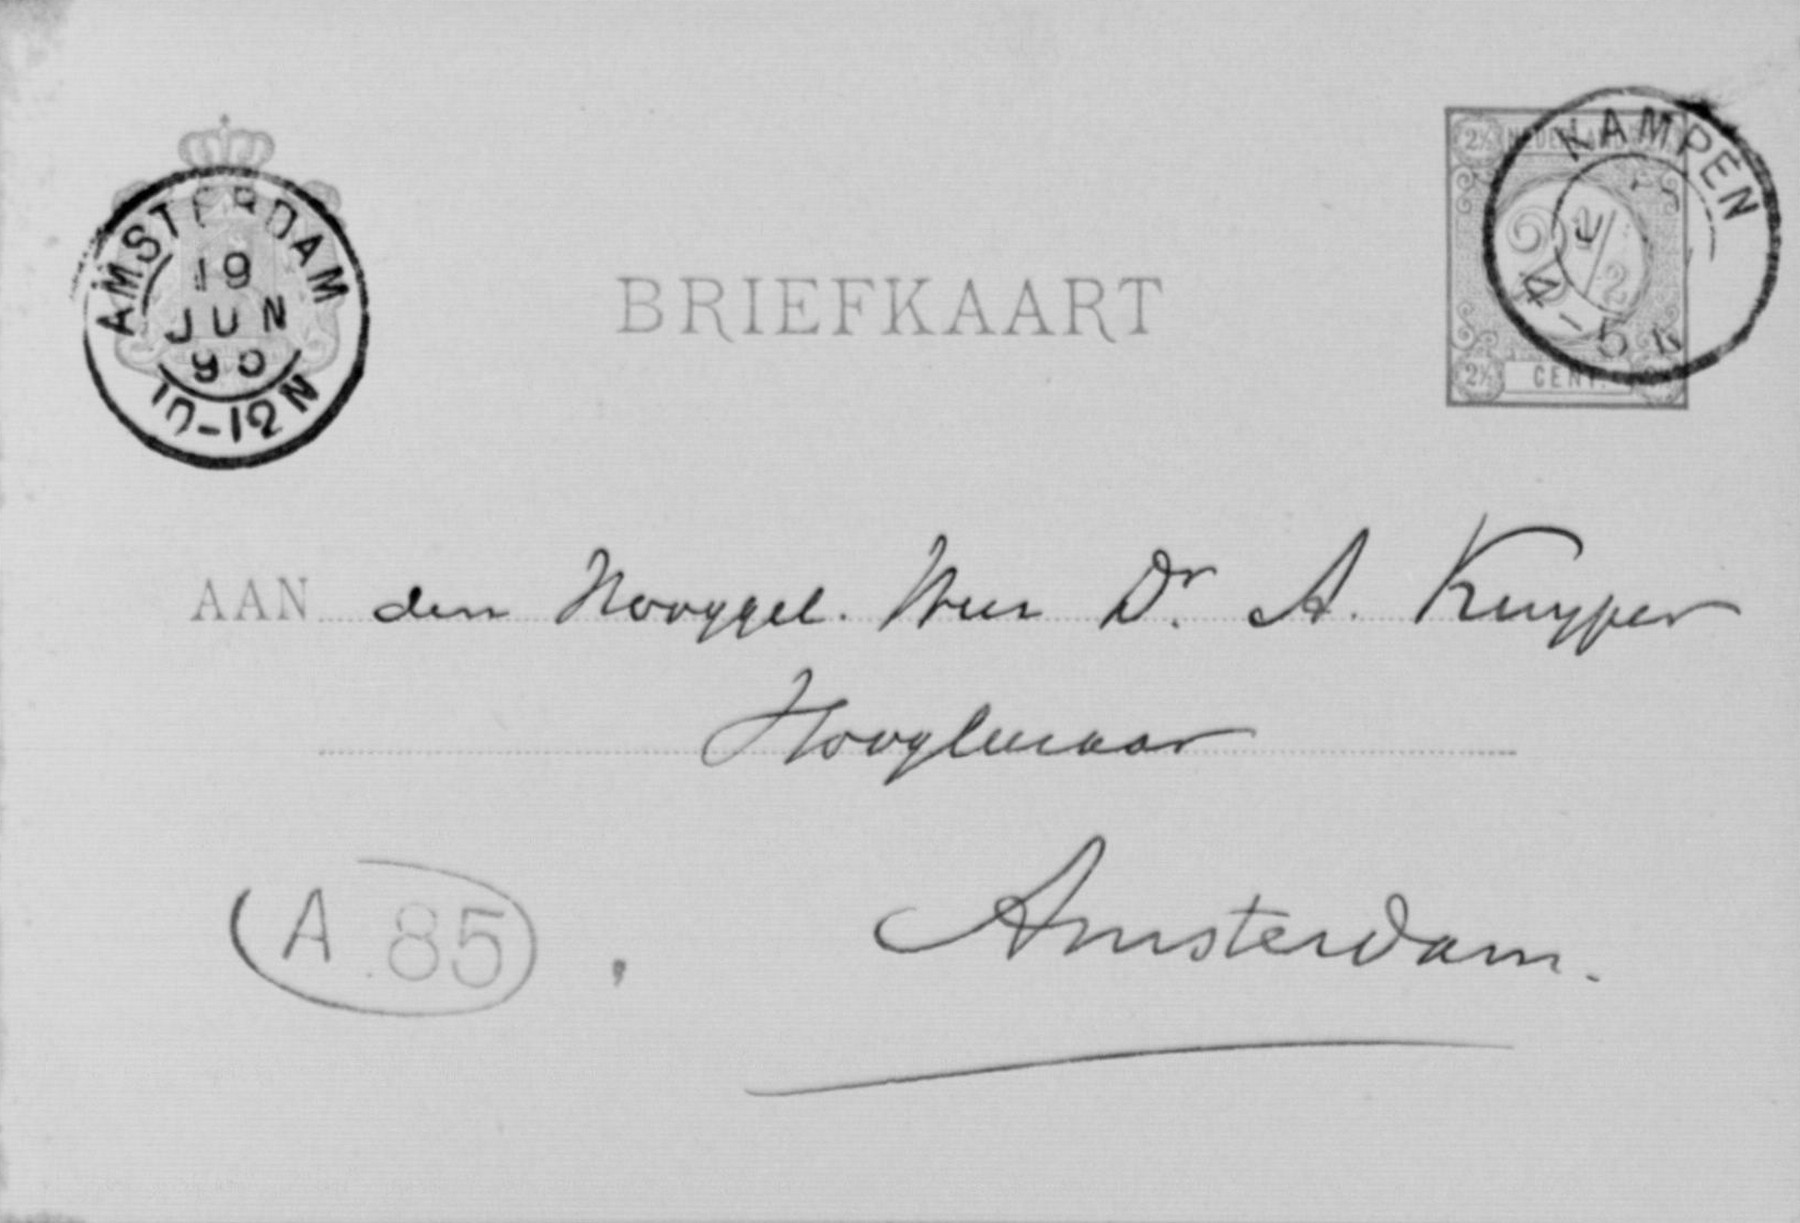 AMSTERDAM
19
JUN
90
10-12 N
KAMPEN
4-5 N
2½
2½
2½
CENT.
BRIEFKAART
AAN den Hooggel. Heer Dr. A. Kuyper
Hoogleeraar
Amsterdam.
A 85